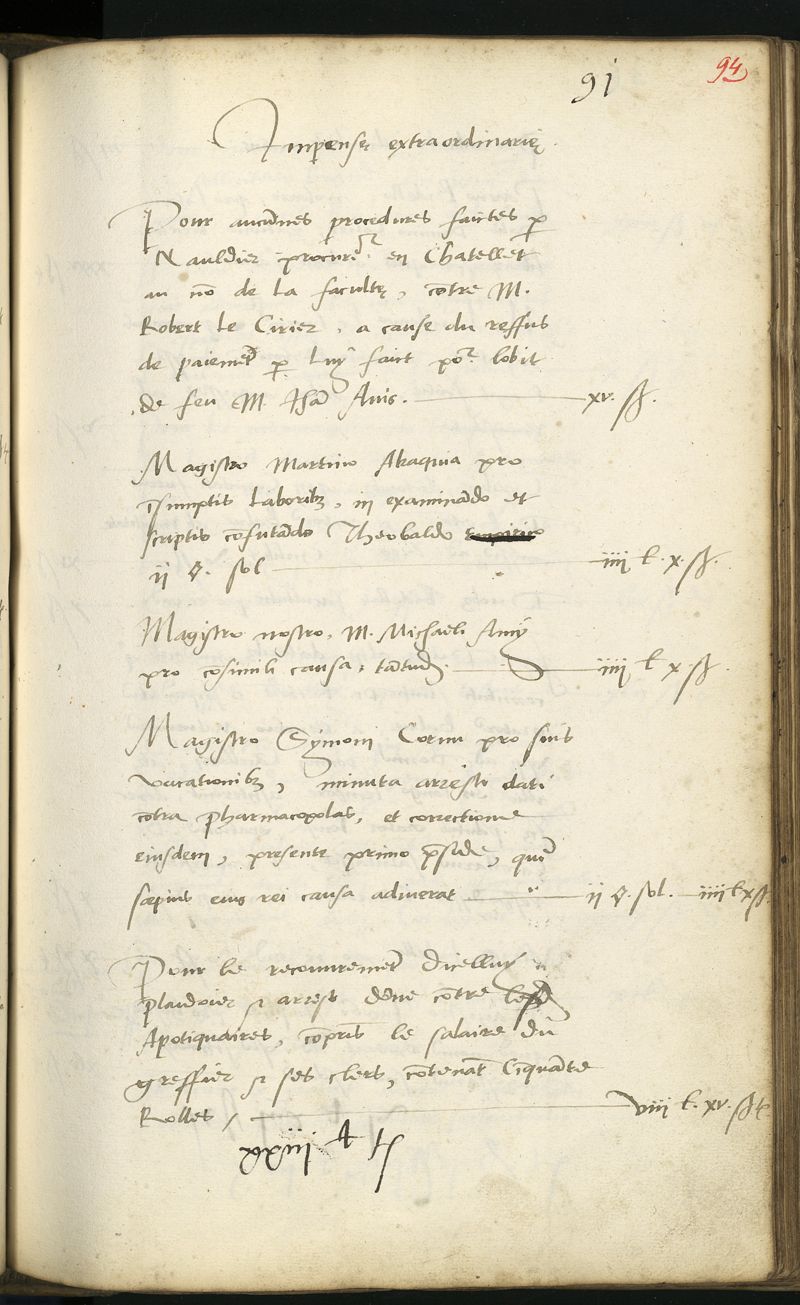 94
91
Impensę extraordinarię
Pour aucunes procedures faictes p
Nauldier procure^r en Chatellet
au nō de la facultę, cōtre M.
Robert le Cirier, a cause du reffus
de paiemēt p luy faict po^r lobit
de feu M. Jhā Avis. xv. ß.
Magistro Martino Akaquia pro
īsumptis laborib3, in examinādo et
scriptis cōfutādo Theobaldo
ii sol iiii l. x. ß.
Magistro nostro, M. Michaeli Amy
pro cōsimili causa, tātūd. iiii l x ß.
Magistro Symoni Cornu pro suis
vacationib3, minuta arresti dati
cōtra pharmacopolas, et correctione
eiusdem, presente primo p̄side, quē
sæpius eius rei causa adiuerat ii sol. iiii l x ß.
Pour le recouvremēt dicelluy
plaidoier et arrest dōne cōtre lesd
Apotiquaires, cōpris le salaire du
greffier et ses clers, cōtenāt Cinquāte
Rolles viii l. xv. ß t.
xxiii